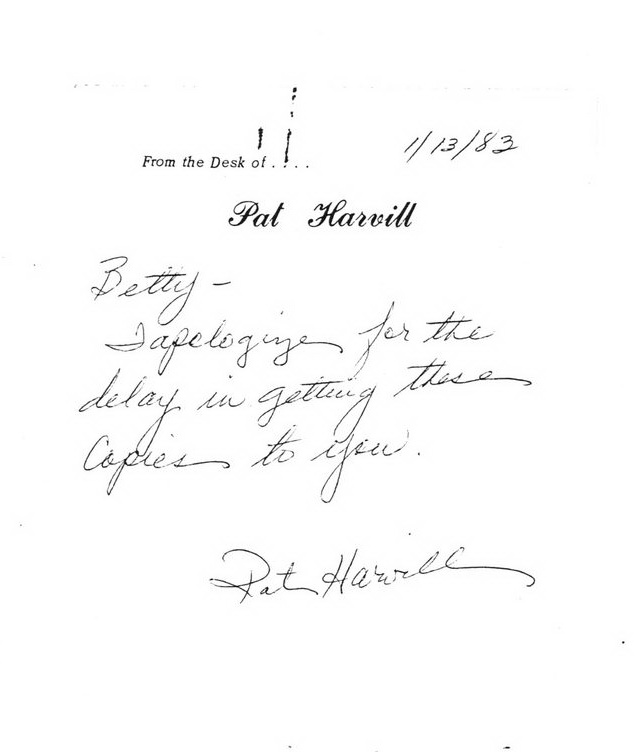 From the Desk of . . . .
1/13/83
Pat Harvill
Betty -
I apologize for the
delay in getting these
Copies to you.
Pat Harvill